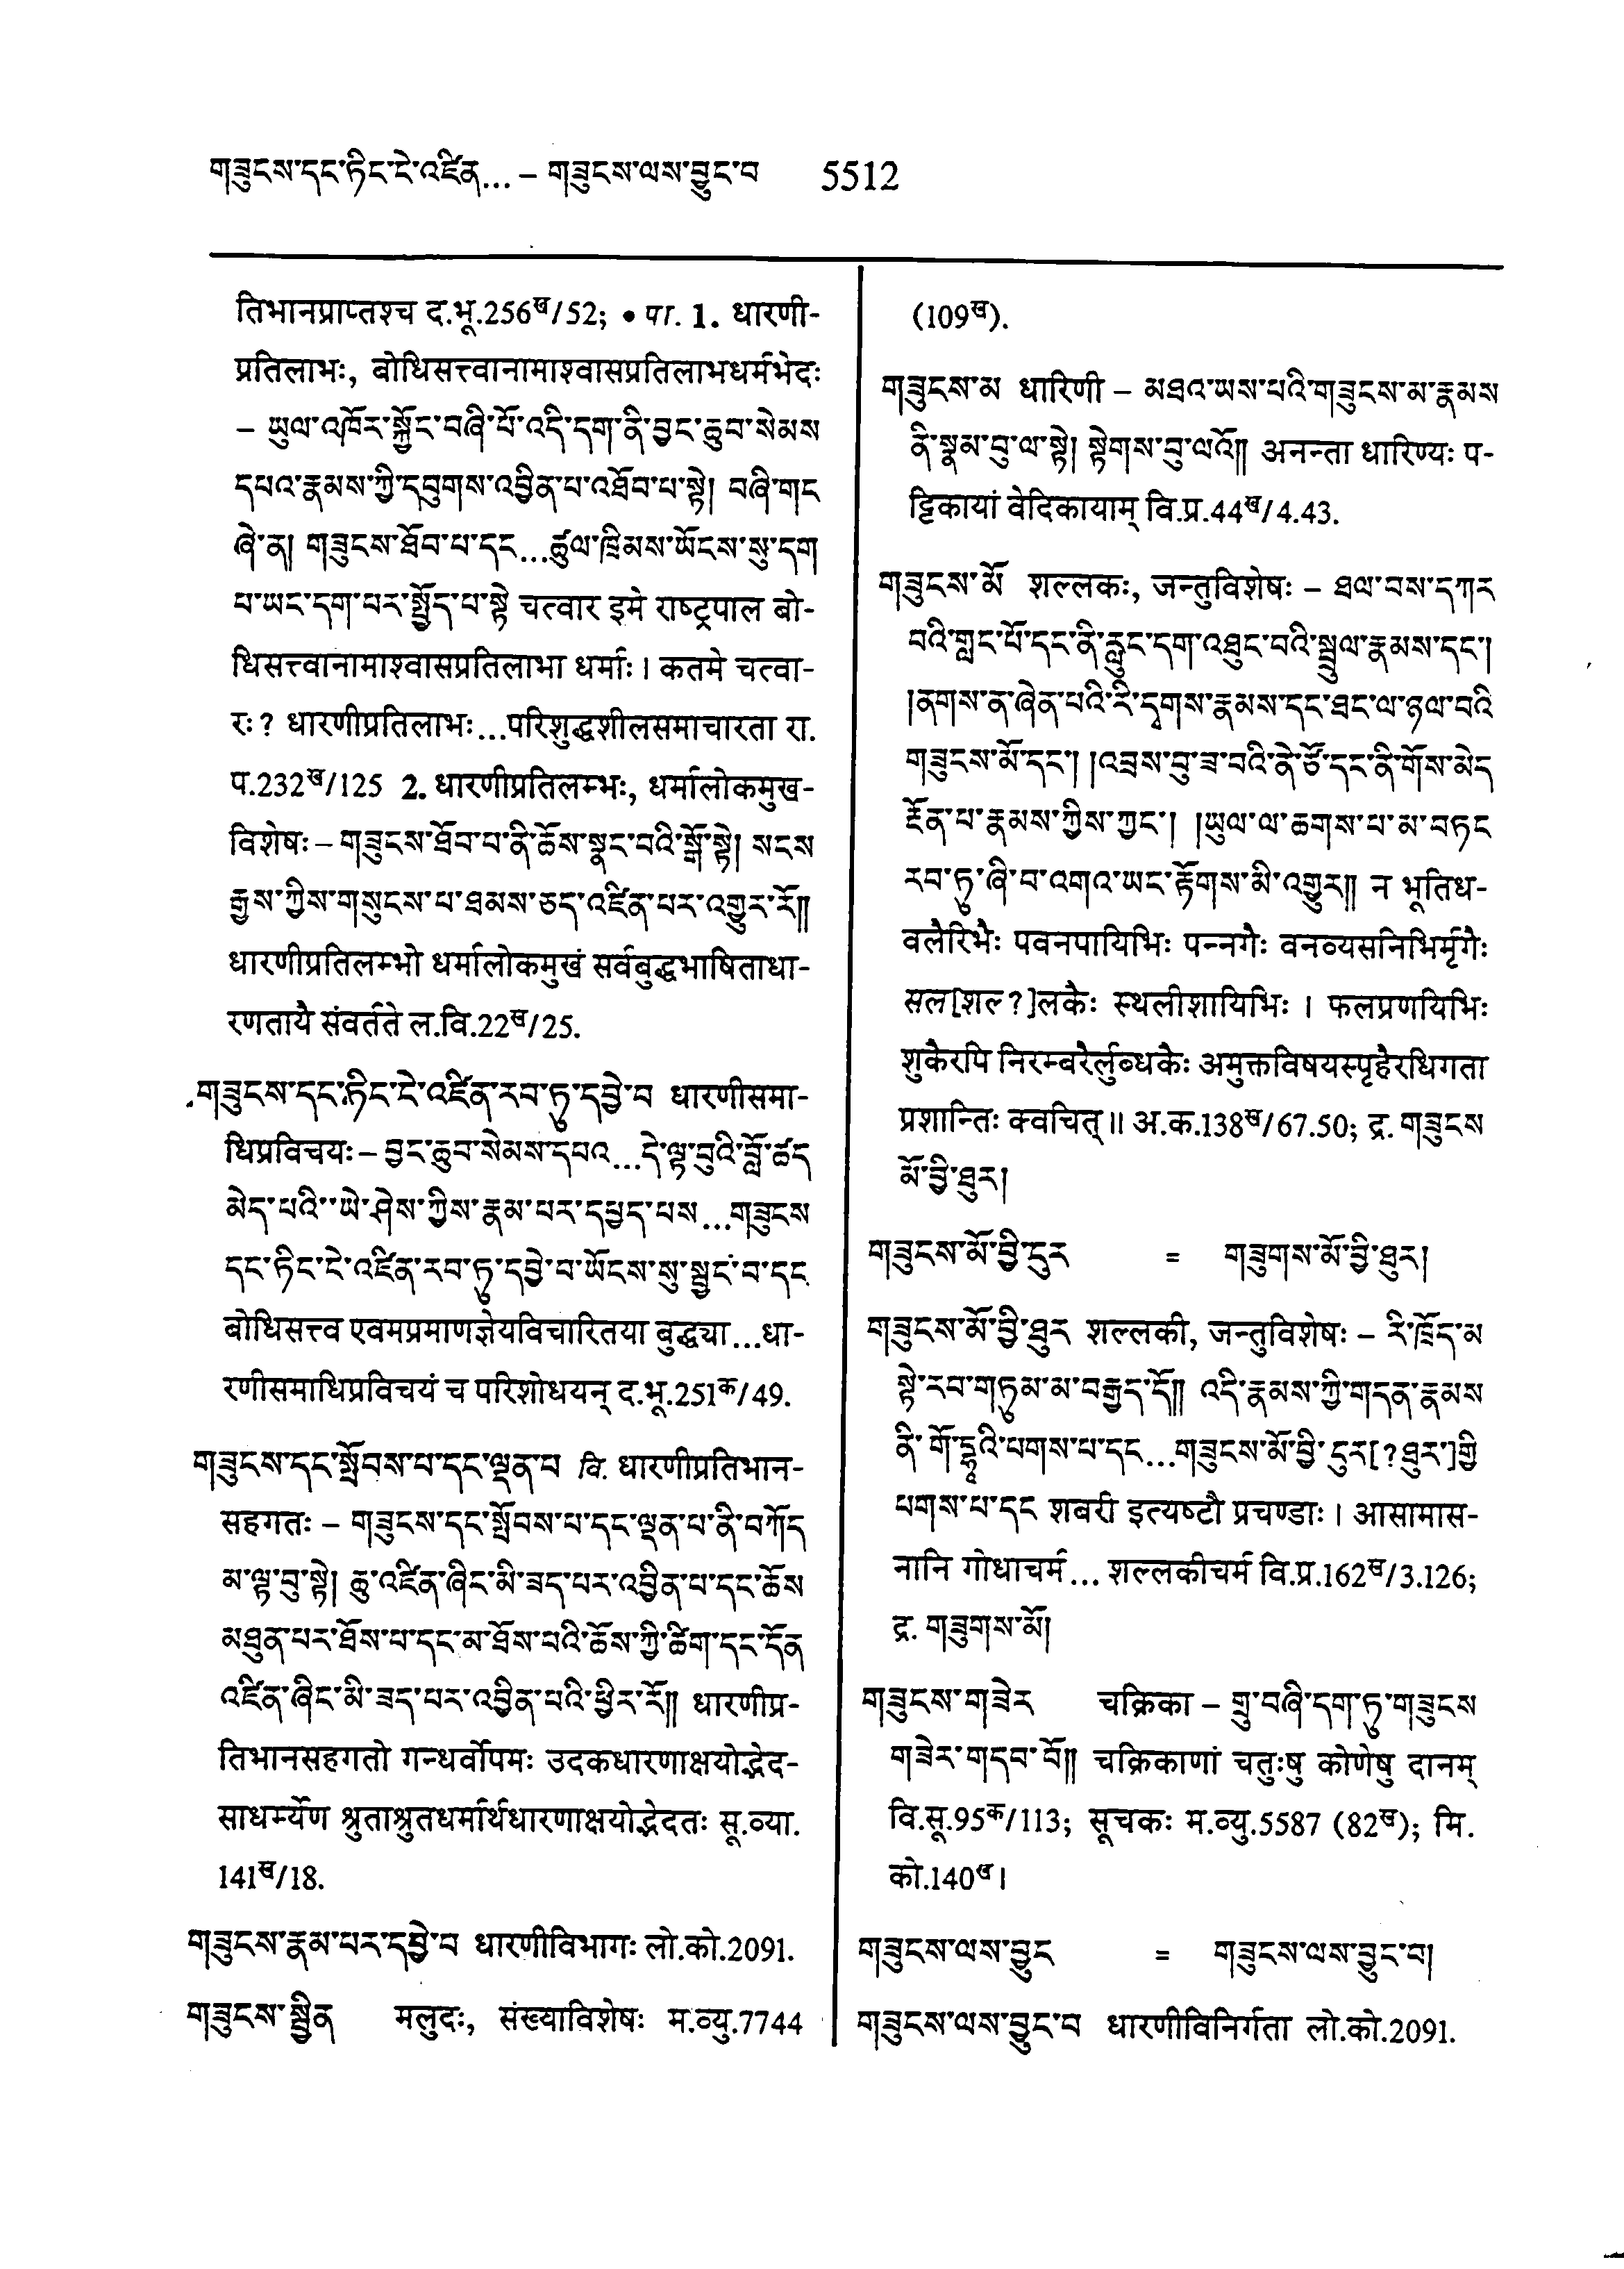 གཟུངས་དང་ཏིང་ངེ་འཛིན...– གཟུངས་ལས་བྱུང་བ 5512
तिभानप्राप्तश्च द.भू.256ख/52; • पा. 1. धारणी-
प्रतिलाभः, बोधिसत्त्वानामाश्वासप्रतिलाभधर्मभेदः
– ཡུལ་འཁོར་སྐྱོང་བཞི་པོ་འདི་དག་ནི་བྱང་ཆུབ་སེམས
དཔའ་རྣམས་ཀྱི་དབུགས་འབྱིན་པ་འཐོབ་པ་སྟེ། བཞི་གང
ཞེ་ན། གཟུངས་ཐོབ་པ་དང...ཚུལ་ཁྲིམས་ཡོངས་སུ་དག
པ་ཡང་དག་པར་སྤྱོད་པ་སྟེ चत्वार इमे राष्ट्रपाल बो-
धिसत्त्वानामाश्वासप्रतिलाभा धर्माः। कतमे चत्वा-
रः? धारणीप्रतिलाभः...परिशुद्धशीलसमाचारता रा.
प.232ख/125 2. धारणीप्रतिलम्भः, धर्मालोकमुख-
विशेषः– གཟུངས་ཐོབ་པ་ནི་ཆོས་སྣང་བའི་སྒོ་སྟེ། སངས
རྒྱས་ཀྱིས་གསུངས་པ་ཐམས་ཅད་འཛིན་པར་འགྱུར་རོ༎
धारणीप्रतिलम्भो धर्मालोकमुखं सर्वबुद्धभाषिताधा-
रणतायै संवर्तते ल.वि.22ख/25.
གཟུངས་དང་ཏིང་ངེ་འཛིན་རབ་ཏུ་དབྱེ་བ धारणीसमा-
धिप्रविचयः– བྱང་ཆུབ་སེམས་དཔའ...དེ་ལྟ་བུའི་བློ་ཚད
མེད་པའི་ཡེ་ཤེས་ཀྱིས་རྣམ་པར་དཔྱད་པས...གཟུངས
དང་ཏིང་ངེ་འཛིན་རབ་ཏུ་དབྱེ་བ་ཡོངས་སུ་སྦྱང་བ་དང
बोधिसत्त्व एवमप्रमाणज्ञेयविचारितया बुद्ध्या...धा-
रणीसमाधिप्रविचयं च परिशोधयन् द.भू.251क/49.
གཟུངས་དང་སྤོབས་པ་དང་ལྡན་པ वि. धारणीप्रतिभान-
सहगतः – གཟུངས་དང་སྤོབས་པ་དང་ལྡན་པ་ནི་བཀོད
མ་ལྟ་བུ་སྟེ། ཆུ་འཛིན་ཞིང་མི་ཟད་པར་འབྱིན་པ་དང་ཆོས
མཐུན་པར་ཐོས་པ་དང་མ་ཐོས་པའི་ཆོས་ཀྱི་ཚིག་དང་དོན
འཛིན་ཞིང་མི་ཟད་པར་འབྱིན་པའི་ཕྱིར་རོ༎ धारणीप्र-
तिभानसहगतो गन्धर्वोपमः उदकधारणाक्षयोद्भेद-
साधर्म्येण श्रुताश्रुतधर्मार्थधारणाक्षयोद्भेदतः सू.व्या.
141ख/18.
གཟུངས་རྣམ་པར་དབྱེ་བ धारणीविभागः लो.को.2091.
གཟུངས་སྦྱིན मलुदः, संख्याविशेषः म.व्यु.7744
(109ख).
གཟུངས་མ धारिणी – མཐའ་ཡས་པའི་གཟུངས་མ་རྣམས
ནི་སྣམ་བུ་ལ་སྟེ། སྟེགས་བུ་ལའོ༎ अनन्ता धारिण्यः प-
ट्टिकायां वेदिकायाम् वि.प्र.44ख/4.43.
གཟུངས་མོ शल्लकः, जन्तुविशेषः – ཐལ་བས་དཀར
བའི་གླང་པོ་དང་ནི་རླུང་དག་འཐུང་བའི་སྦྲུལ་རྣམས་དང་།
།ནགས་ན་ཞེན་པའི་རི་དྭགས་རྣམས་དང་ཐང་ལ་ཉལ་བའི
གཟུངས་མོ་དང་། །འབྲས་བུ་ཟ་བའི་ནེ་ཙོ་དང་ནི་གོས་མེད
རྔོན་པ་རྣམས་ཀྱིས་ཀྱང་། །ཡུལ་ལ་ཆགས་པ་མ་བཏང
རབ་ཏུ་ཞི་བ་འགའ་ཡང་རྟོགས་མི་འགྱུར༎ न भूतिध-
वलैरिभैः पवनपायिभिः पन्नगैः वनव्यसनिभिर्मृगैः
सल[शल?]लकैः स्थलीशायिभिः। फलप्रणयिभिः
शुकैरपि निरम्बरैर्लुब्धकैः अमुक्तविषयस्पृहैरधिगता
प्रशान्तिः क्वचित्॥ अ.क.138ख/67.50; द्र. གཟུངས
མོ་བྱི་ཐུར།
གཟུངས་མོ་བྱི་དུར = གཟུགས་མོ་བྱི་ཐུར།
གཟུངས་མོ་བྱི་ཐུར शल्लकी, जन्तुविशेषः – རི་ཁྲོད་མ
སྟེ་རབ་གཏུམ་མ་བརྒྱད་དོ༎ འདི་རྣམས་ཀྱི་གདན་རྣམས
ནི་གོ་དྷཱའི་པགས་པ་དང...གཟུངས་མོ་བྱི་དུར[?ཐུར་]གྱི
པགས་པ་དང शबरी इत्यष्टौ प्रचण्डाः। आसामास-
नानि गोधाचर्म... शल्लकीचर्म वि.प्र.162ख/3.126;
द्र. གཟུགས་མོ།
གཟུངས་གཟེར चक्रिका – གྲུ་བཞི་དག་ཏུ་གཟུངས
གཟེར་གདབ་བོ༎ चक्रिकाणां चतुःषु कोणेषु दानम्
वि.सू.95क/113; सूचकः म.व्यु.5587 (82ख); मि.
को.140ख।
གཟུངས་ལས་བྱུང = གཟུངས་ལས་བྱུང་བ།
གཟུངས་ལས་བྱུང་བ धारणीविनिर्गता लो.को.2091.